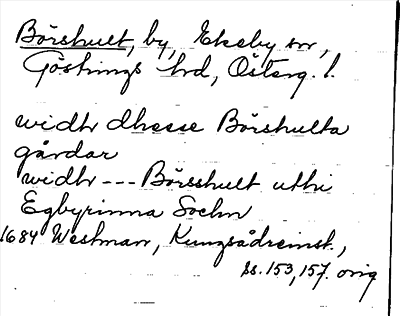 Börshult, by, Ekeby sn,
Göstrings hrd, Österg. l.
widh dhesse Börshulta
gårdar
widh --- Börsshult uthi
Egbyrinna Sochn
1684 Westman, Kungsådreinst.,
ss. 153, 157. orig